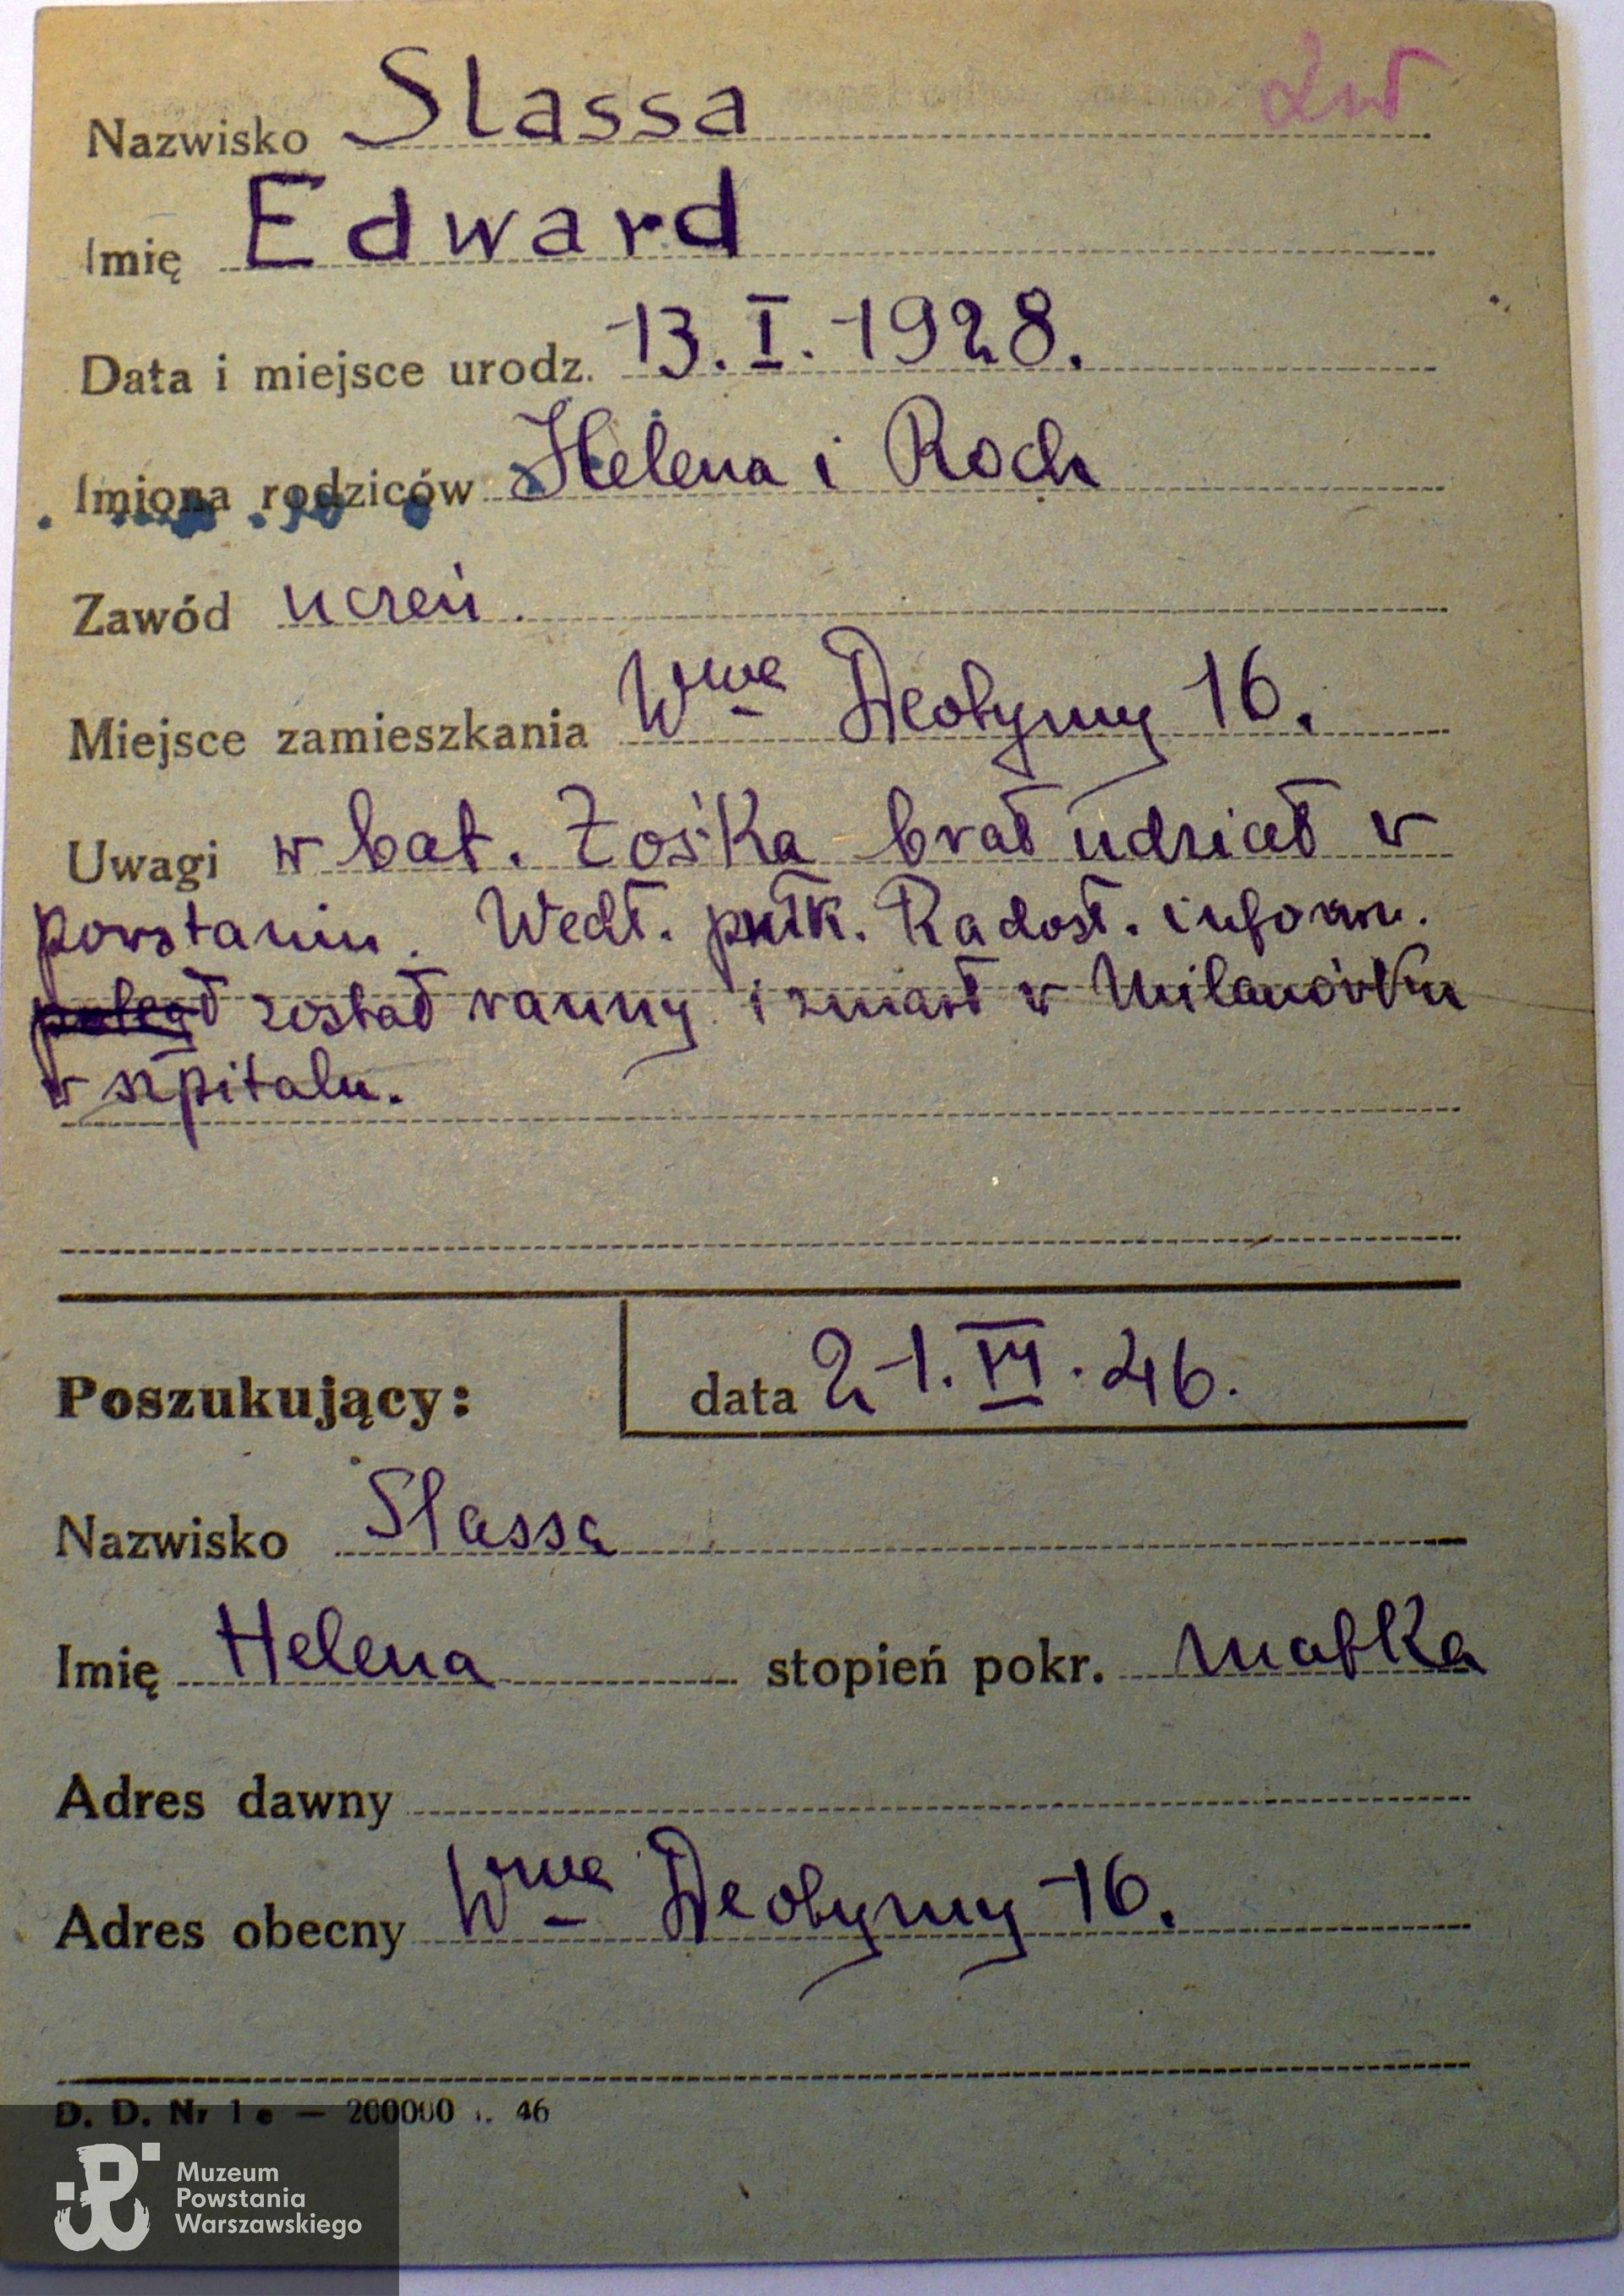 Nazwisko Slassa
Imię Edward
Data i miejsce urodz. 13. I. 1928.
Imiona rodziców Helena i Roch
Zawód uczeń.
Miejsce zamieszkania Wwa Deotymy 16.
Uwagi w bat. Zośka brał udział w
powstaniu. Wedł. płk. Radosł. inform.
poległ został ranny i zmarł w Milanówku
w szpitalu.
Poszukujący: data 21. III. 46.
Nazwisko Slassa
Imię Helena stopień pokr. matka
Adres dawny
Adres obecny Wwa Deotymy 16.
D. D. Nr 1 e — 200000 . 46
Muzeum
Powstania
Warszawskiego